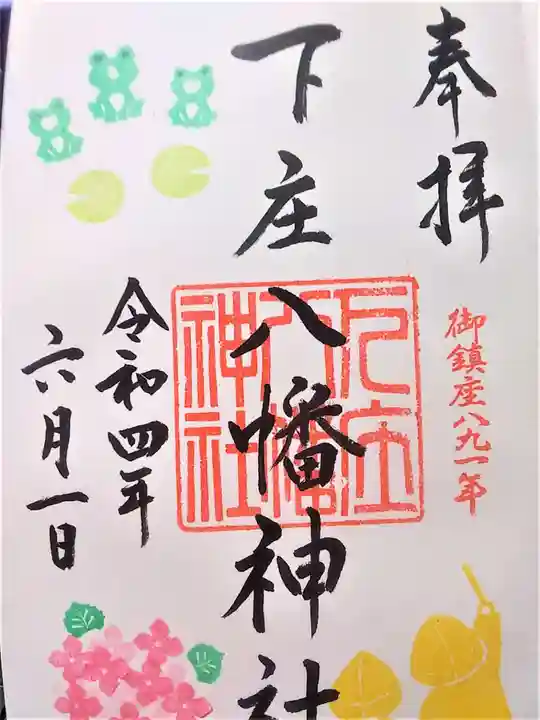 奉拝
御鎮座八九一年
下庄八幡神社
下庄
八幡
神社
令和四年
六月一日